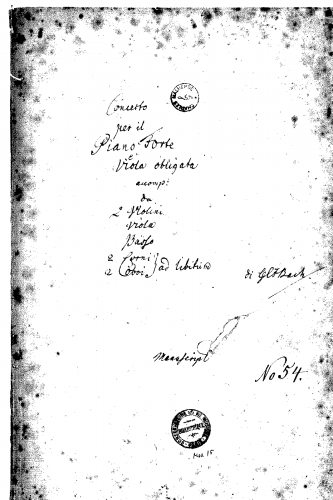 Concerto
per il
Piano Forte
e
Viola obligata
accomp:
da
2 Violini
Viola
Basso
2 Corni
2 Oboi } ad libitum
di
Manuscript
No 54.
Mus 15